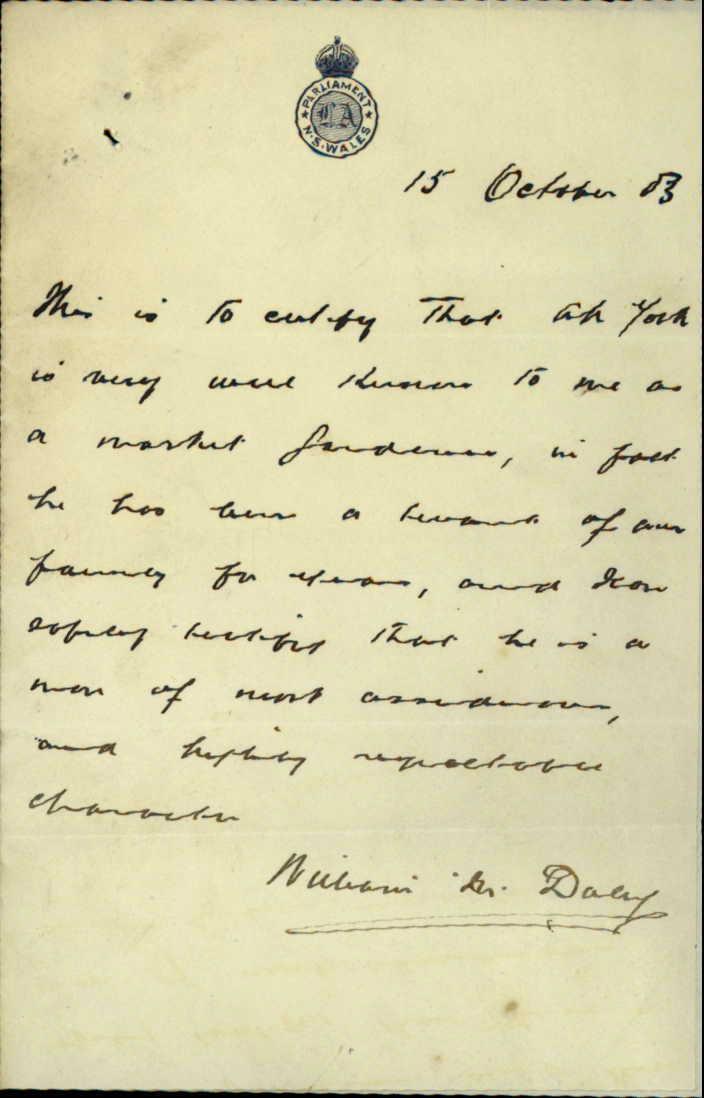 PARLIAMENT
LA
N.S. WALES
15 October 03
This is to certify that Ah York
is very well known to me as
a market gardener, in fact
he has been a tenant of our
family for years, and I can
safely testify that he is a
man of most assiduous,
and highly respectable
character
William Daley